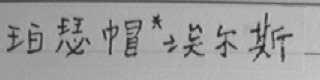 珀瑟帽*埃尔斯